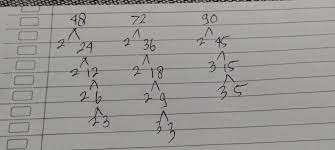 48 72 90
2 24 2 36 2 45
2 12 2 18 3 15
2 6 2 9 3 5
2 3 3 3